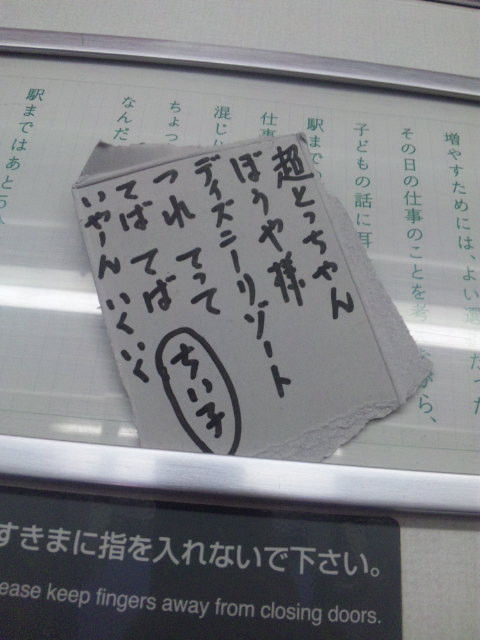 増やすためには、よい
その日の仕事のことを考
子どもの話に耳
駅まで
仕事
混じ
ちょっ
なんだ
駅まではあと
超とっちゃん
ぼうや様
ディズニーリゾート
つれ てって
てば てば
いやーん いくいく
ちい子
すきまに指を入れないで下さい。
ease keep fingers away from closing doors.